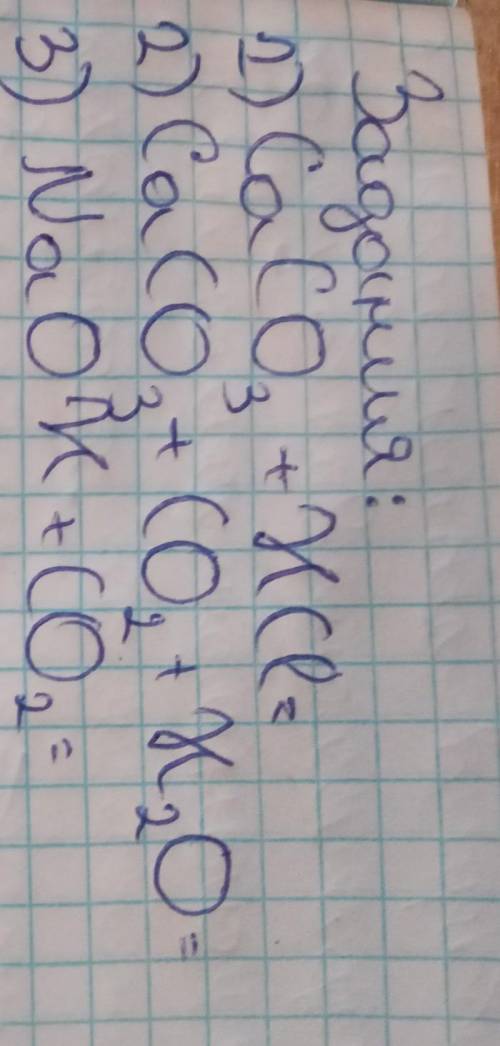 Задания:
1) CaCO₃ + HCl =
2) CaCO₃ + CO₂ + H₂O =
3) NaOH + CO₂ =